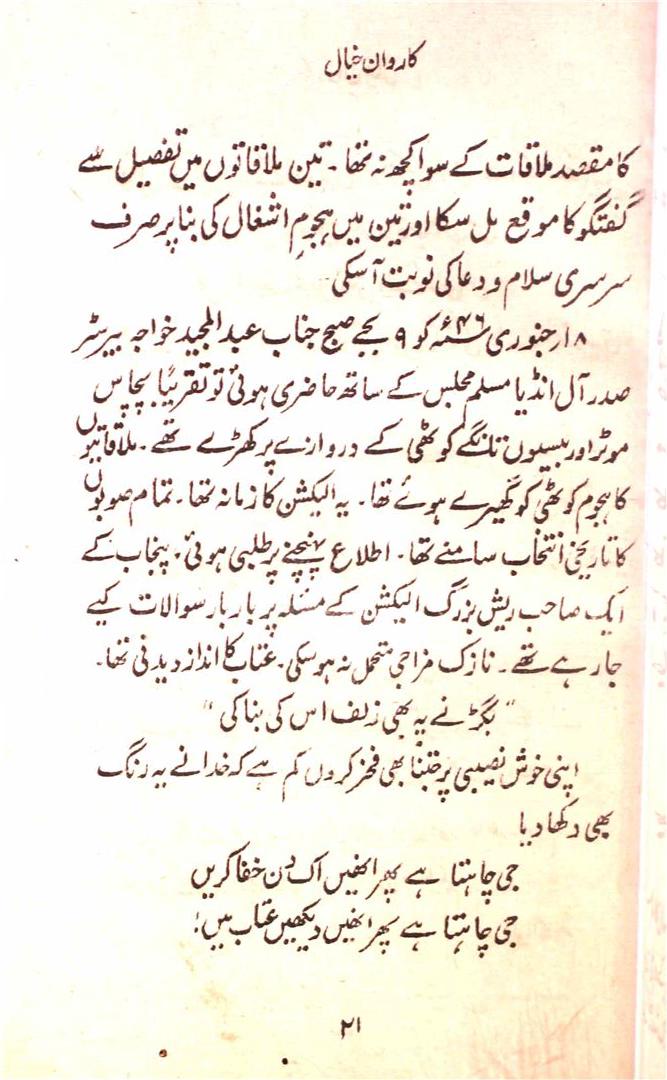 کاروان خیال
کا مقصد ملاقات کے سوا کچھ نہ تھا۔ تین ملاقاتوں میں تفصیل سے
گفتگو کا موقع مل سکا اور تین میں ہجومِ اشغال کی بنا پر صرف
سرسری سلام و دعا کی نوبت آسکی
۱۸ر جنوری ۴۶ء کو ۹ بجے صبح جناب عبدالمجید خواجہ بیرسٹر
صدر آل انڈیا مسلم مجلس کے ساتھ حاضری ہوئی تو تقریباً پچاس
موٹر اور بیسیوں تانگے کوٹھی کے دروازے پر کھڑے تھے۔ ملاقاتیوں
کا ہجوم کوٹھی کو گھیرے ہوئے تھا۔ یہ الیکشن کا زمانہ تھا۔ تمام صوبوں
کا تاریخی انتخاب سامنے تھا۔ اطلاع پہنچنے پر طلبی ہوئی، پنجاب کے
ایک صاحب ریش بزرگ الیکشن کے مسئلہ پر بار بار سوالات کیے
جارہے تھے۔ نازک مزاجی متحمل نہ ہوسکی۔ عتاب کا انداز دیدنی تھا۔
"بگڑنے یہ بھی زلف اس کی بنا کی"
اپنی خوش نصیبی پر جتنا بھی فخر کروں کم ہے کہ خدا نے یہ رنگ
بھی دکھا دیا
جی چاہتا ہے پھر انھیں اک دن خفا کریں
جی چاہتا ہے پھر انھیں دیکھیں عتاب میں!
۲۱